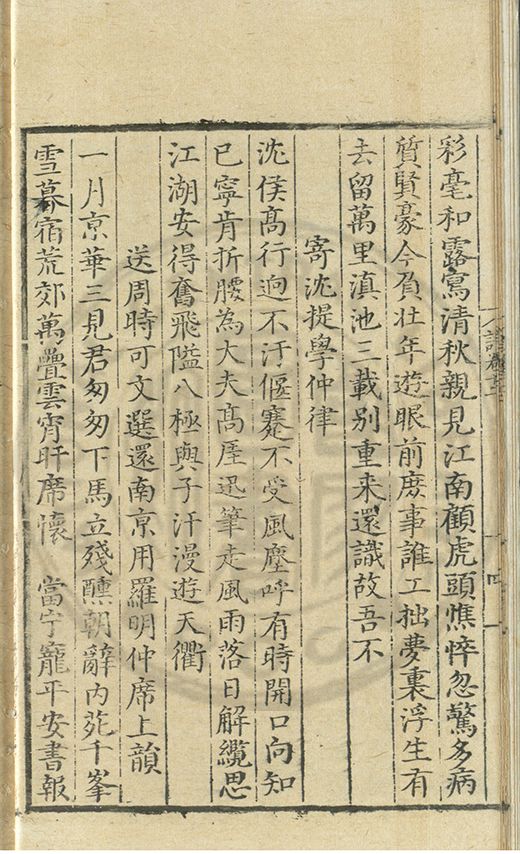 彩毫和露寫清秋親見江南顧虎頭憔悴忽驚多病
質賢豪今負壯年遊眼前廢事誰工拙夢裏浮生有
去留萬里滇池三載别重来還識故吾不
寄沈提學仲律
沈侯高行逈不汙偃蹇不受風塵呼有時開口向知
已寧肯折腰為大夫高厓迅筆走風雨落日解纜思
江湖安得奮飛隘八極與子汗漫遊天衢
送周時可文選還南京用羅明仲席上韻
一月京華三見君匆匆下馬立殘醺朝辭内苑千峯
雪暮宿荒郊萬疊雲宵旰席懷　當宁寵平安書報